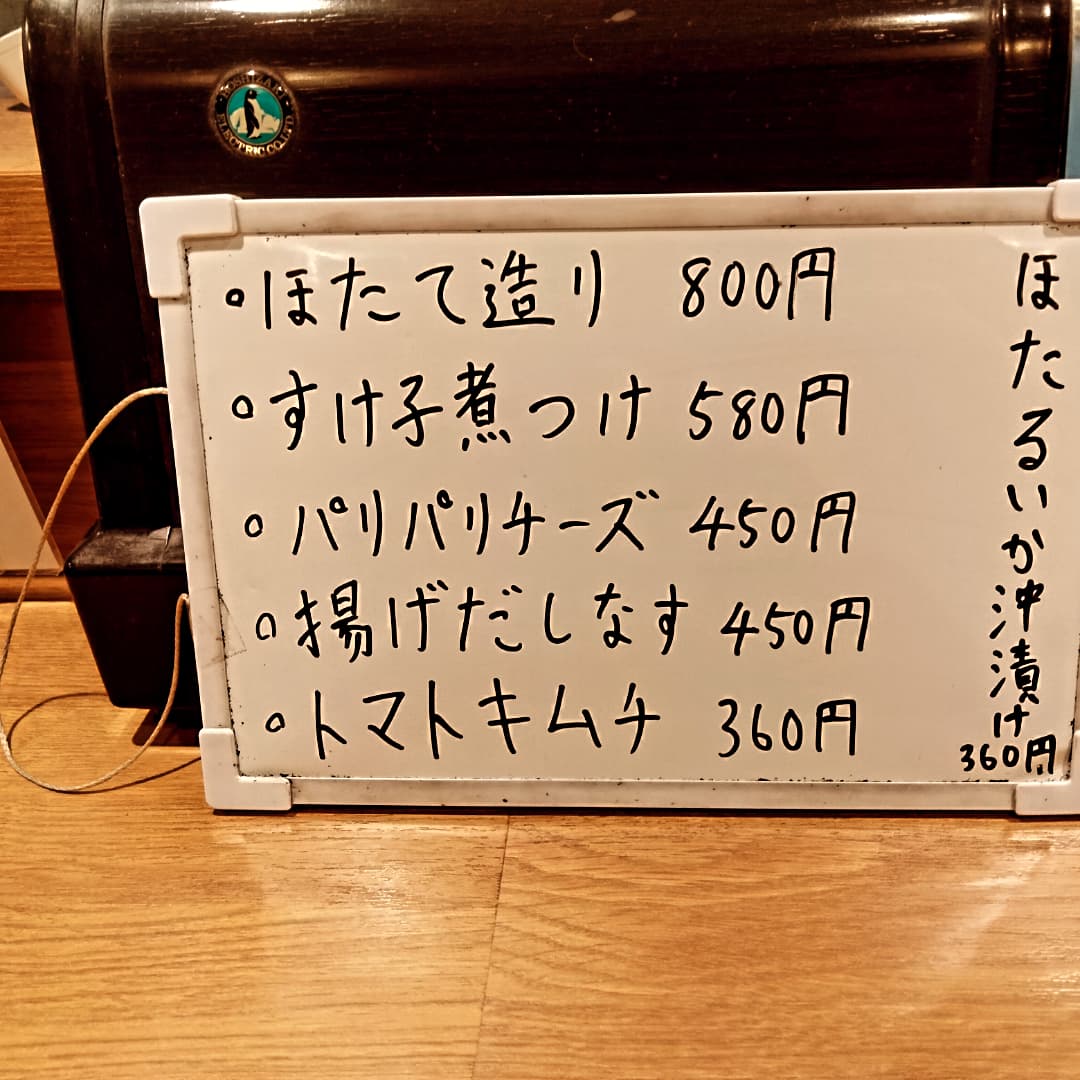 HOSHIZAKI ELECTRIC CO.,LTD.
・ほたて造り 800円
・すけ子煮つけ 580円
・パリパリチーズ 450円
・揚げだしなす 450円
・トマトキムチ 360円
ほたるいか沖漬け
360円